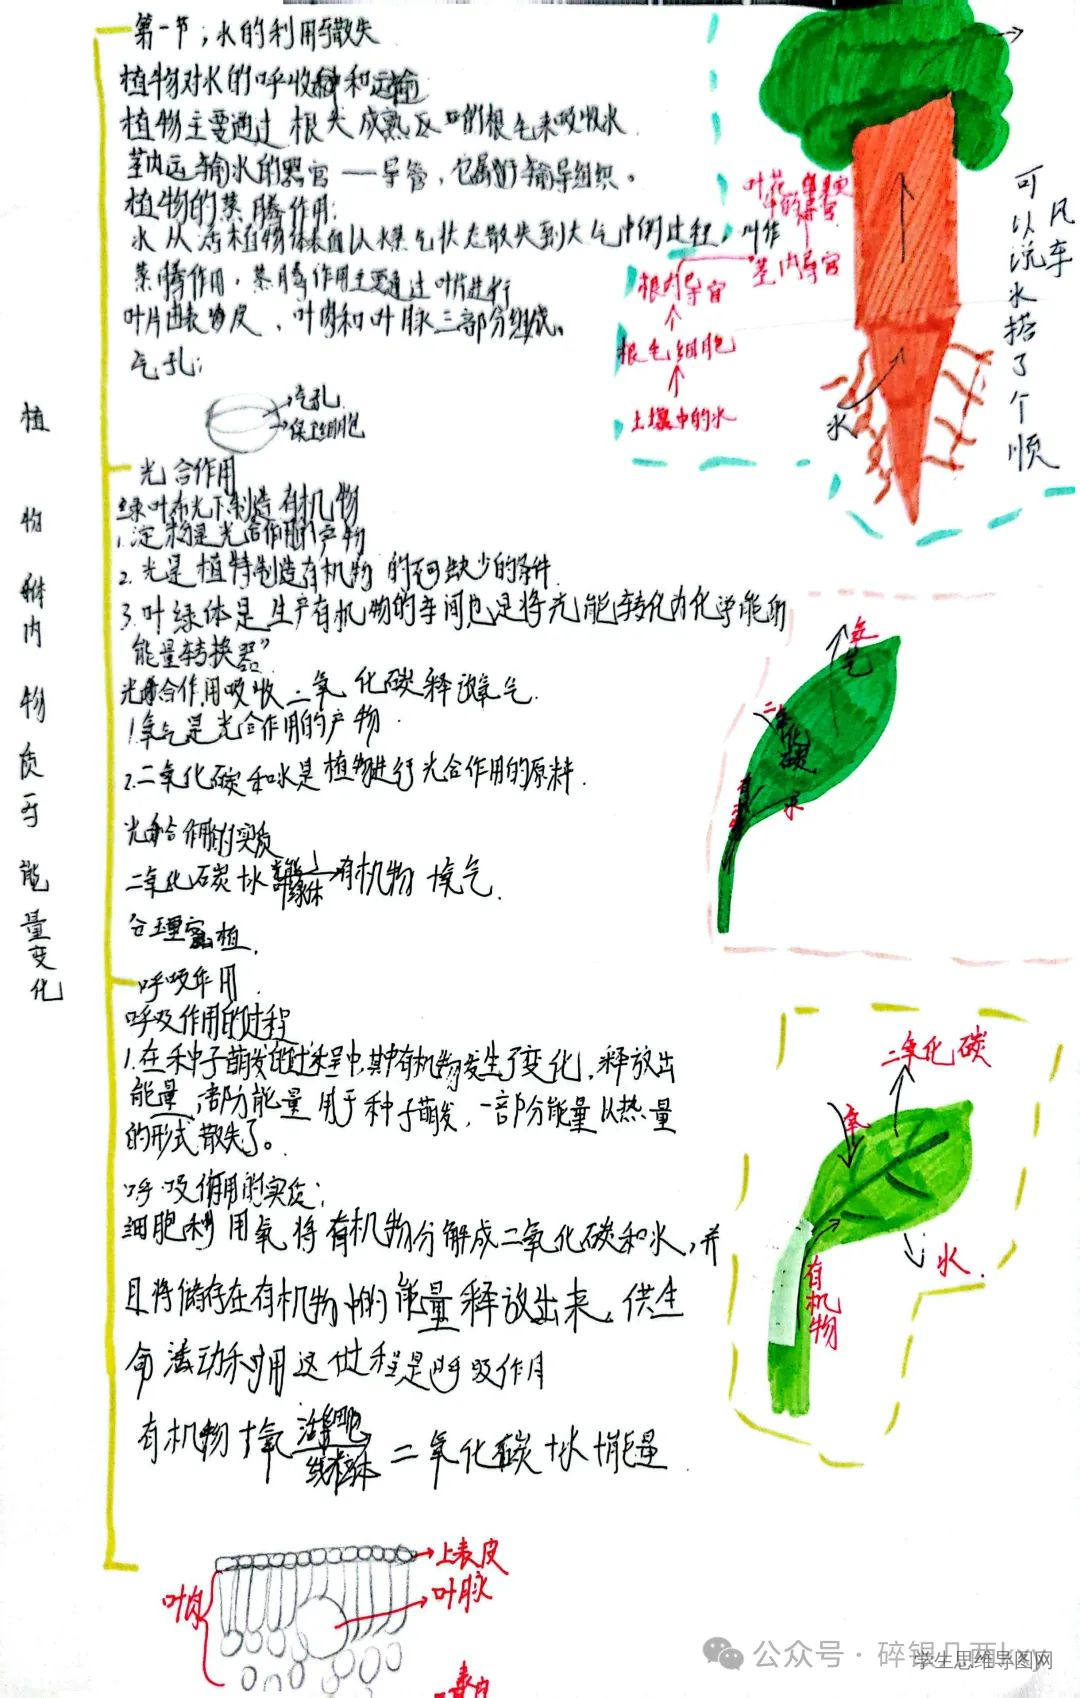 植物体内物质与能量变化
第一节；水的利用与散失
植物对水的呼收和运输
植物主要通过根尖成熟区的根毛来吸收水
茎内运输水的器官——导管，它属于输导组织。
植物的蒸腾作用：
水从活植物体表面以水蒸气状态散失到大气中的过程，叫作
蒸腾作用，蒸腾作用主要通过叶片进行
叶片由表皮、叶肉和叶脉三部分组成。
气孔：
气孔
保卫细胞
叶花
茎内导管
根内导管
根毛细胞
土壤中的水
水
可以说水搭了个顺风车
光合作用
绿叶在光下制造有机物
1.淀粉是光合作用的产物
2.光是植物制造有机物的不可缺少的条件
3.叶绿体是生产有机物的车间也是将光能转化为化学能的
能量转换器”
光合作用吸收二氧化碳释放氧气.
1.氧气是光合作用的产物.
2.二氧化碳和水是植物进行光合作用的原料.
光合作用的实质
二氧化碳+水 光能 叶绿体 → 有机物+氧气.
合理密植.
氧气
二氧化碳
水
呼吸作用
呼吸作用的过程
1.在种子萌发的过程中,其中有机物发生了变化,释放出
能量,部分能量用于种子萌发,一部分能量以热量
的形式散失了。
呼吸作用的实质：
细胞利用氧,将有机物分解成二氧化碳和水,并
且将储存在有机物中的能量释放出来,供生
命活动利用这个过程是呼吸作用
有机物+氧 活细胞 线粒体 → 二氧化碳+水+能量
二氧化碳
氧
水.
有机物
上表皮
叶脉
叶肉
公众号·碎银几两kyy
学生思维导图网